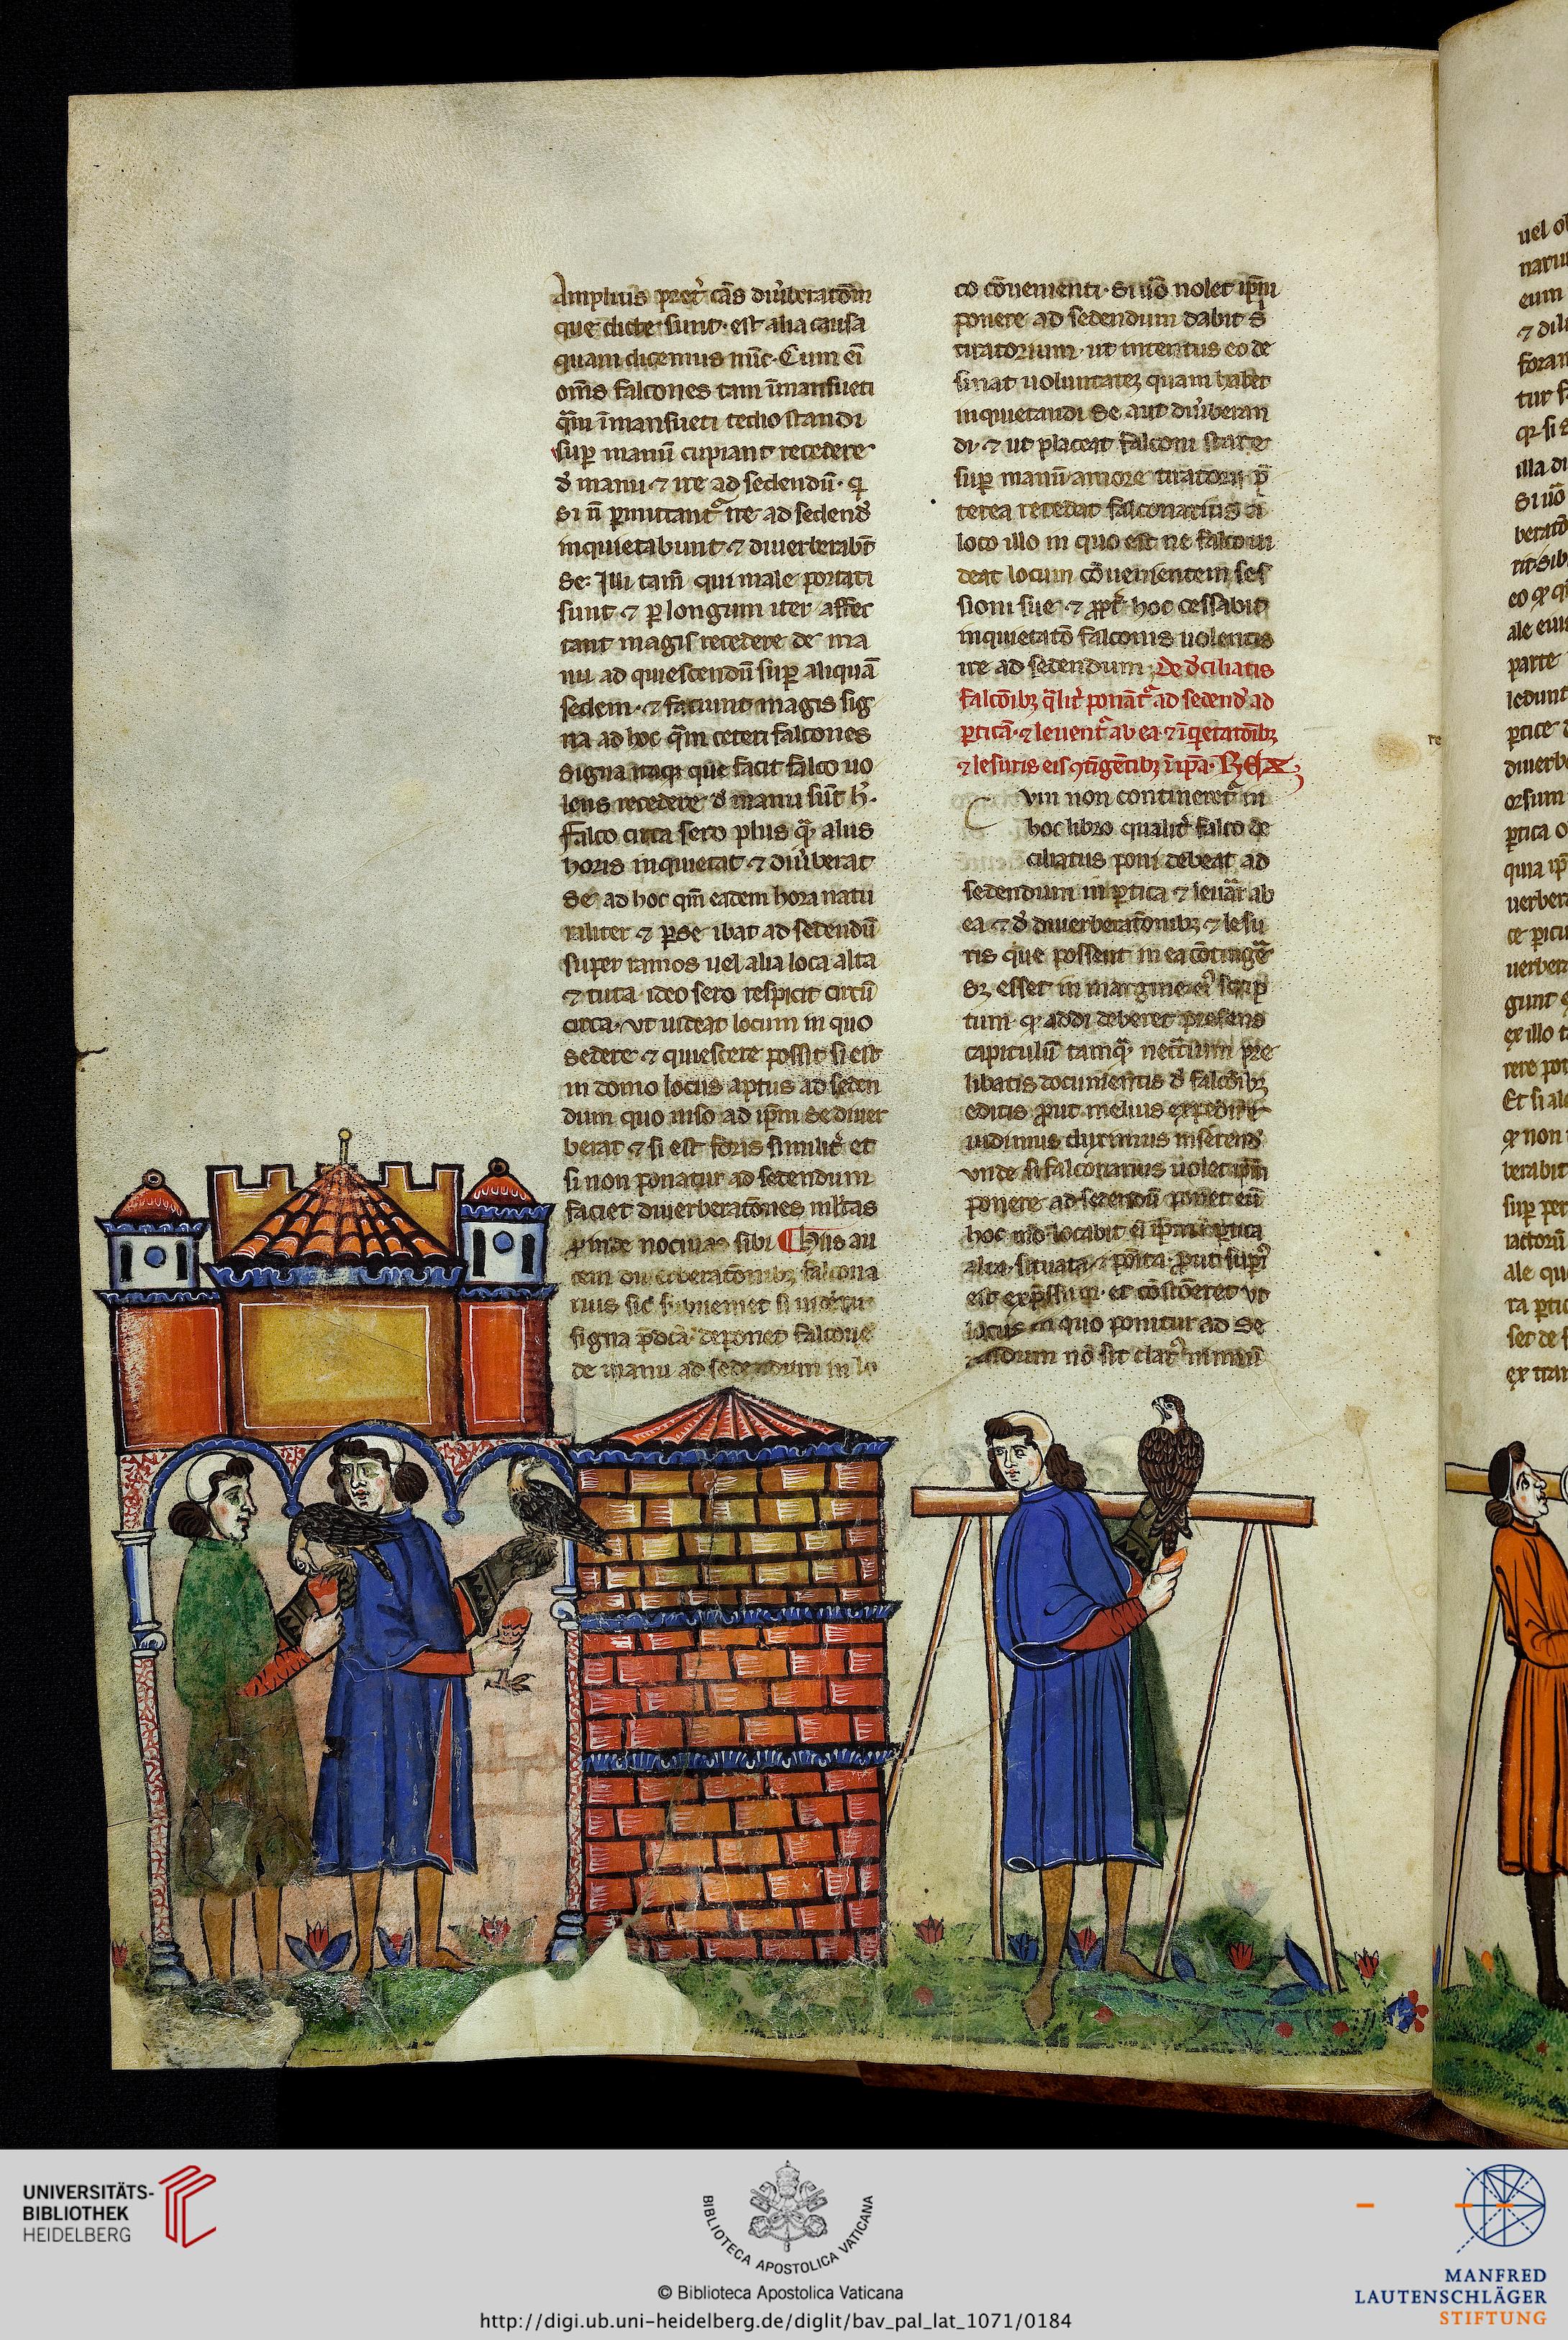 Amplius pret᷑ cās diūberatōm
que dicte sunt· est alia causa
quam dicemus nūc· Cum eī
om̄s falcones tam īmansueti
q̄m īmansueti tedio standi
sup̱ manū cupiant recedere
d̓ manu ⁊ ire ad sedendū· ꝙ
si n̄ ꝑmittant᷑ ire ad sedend̓
inquietabunt ⁊ diuerberabt̄
se· Illi tam̄ qui male portati
sunt ⁊ ꝑ longum iter affec
tant magis recedere de ma
nu ad quiescendū suꝑ aliquā
sedem· ⁊ faciunt magis sig
na ad hoc q̄m ceteri falcones
Signa itaqꝫ que facit falco uo
lens recedere d̓ manu sūt h̓·
Falco circa sero plus q̄ alus
horis inquietat ⁊ diūberat
se· ad hoc qm̄ eadem hora natu
raliter ⁊ ꝑ se ibat ad sedendū
super ramos uel alia loca alta
⁊ tuta· ideo sero respicit circū
circa· vt uideat locum in quo
sedere ⁊ quiescere possit· si est
in domo locus aptus ad seden
dum quo uiso ad ip̄m se diuer
berat ⁊ si est foris similit᷑ et
si non ponatur ad sedendum
faciet diuerberatōnes ml̓tas
ꝓinde nociuas sibi Chis au
tem diuerberatōnibꝫ falcona
rius sic subueniet si
signa p̄dc̄a deponet falconē
de manu ad sedendum in lo
co cōuenienti· Si uō nolet ip̄m
ponere ad sedendum dabit s̓
tiratorium· ut intentus eo de
sinat uoluntatēꝫ quam habet
inquietandi se aut diūberan
di· ⁊ ut placeat falconi stare
suꝑ manū amore tiratorii p̄
terea recedat falconarius a
loco illo in quo est ne falco ui
deat locum cōuenientem ses
sioni sue· ⁊ ꝓpt̓ hoc cessabit
inquietatō falconis uolentis
ire ad sedendum· De d̓ciliatis
falcōibꝫ q̄lit᷑ ponāt᷑ ad sedend̓ ad
ꝑticā· ⁊ leuent᷑ ab ea· ⁊ īq̇etatōibꝫ
⁊ lesuris eis ꝯtīgētibꝫ ī ip̄a· REX
Cum non contineret᷑ in
hoc libro qualit᷑ falco de
ciliatus poni debeat ad
sedendum in ꝑtica ⁊ leuar̄ ab
ea ⁊ d̓ diuerberatōnibꝫ ⁊ lesu
ris que possent in ea cōtinge᷑
sꝫ esset in margine ei᷒ scrip
tum· ꝙ addi deberet presens
capitulū tamq̄ necc̄ium pre
libatis documentis d̓ falcōibꝫ
editis ꝓut melius expedire
uidimus duximus inserend̓
vnde si falconarius uolet ip̄m
ponere ad sedendū ponet eū
hoc mō· locabit eī ip̄m ī ꝑtica
alta· situata ⁊ pōita· ꝓut supi᷑
est exp̄ssum· et cōsideret vt
locus in quo ponitur ad se
dendum nō sit clar᷒ nimiū
uel
narii
eum
⁊
foran
tur
illa
Si uō
eo
ale
parte
ledunt
ꝑtice
diuerb
orsum
ꝑtica
quia
uerber
uerber
gunt
ex illo
rere
Et si
ꝙ non
berabit
suꝑ
ale
ra
set de
ex
UNIVERSITÄTS-
BIBLIOTHEK
HEIDELBERG
BIBLIOTECA APOSTOLICA VATICANA
© Biblioteca Apostolica Vaticana
http://digi.ub.uni-heidelberg.de/diglit/bav_pal_lat_1071/0184
MANFRED
LAUTENSCHLÄGER
STIFTUNG